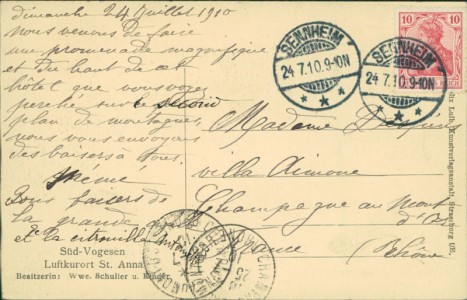 dimanche 24 Juillet 1910
nous venons de faire
une promenade magnifique
et du haut de cet
hôtel que vous voyez
perché sur le second
plan de montagnes,
nous vous envoyons
des baisers à tous.
Bons baisers de
la grande
et la citrouille
Süd-Vogesen
Luftkurort St. Anna
Besitzerin: Wwe. Schuller u. Kinder
10 10
SENNHEIM
24 7.10.9-10N
SENNHEIM
24 7.10.9-10N
Madame
villa Aimone
Champagne au Mont
d'Or
France (Rhône)